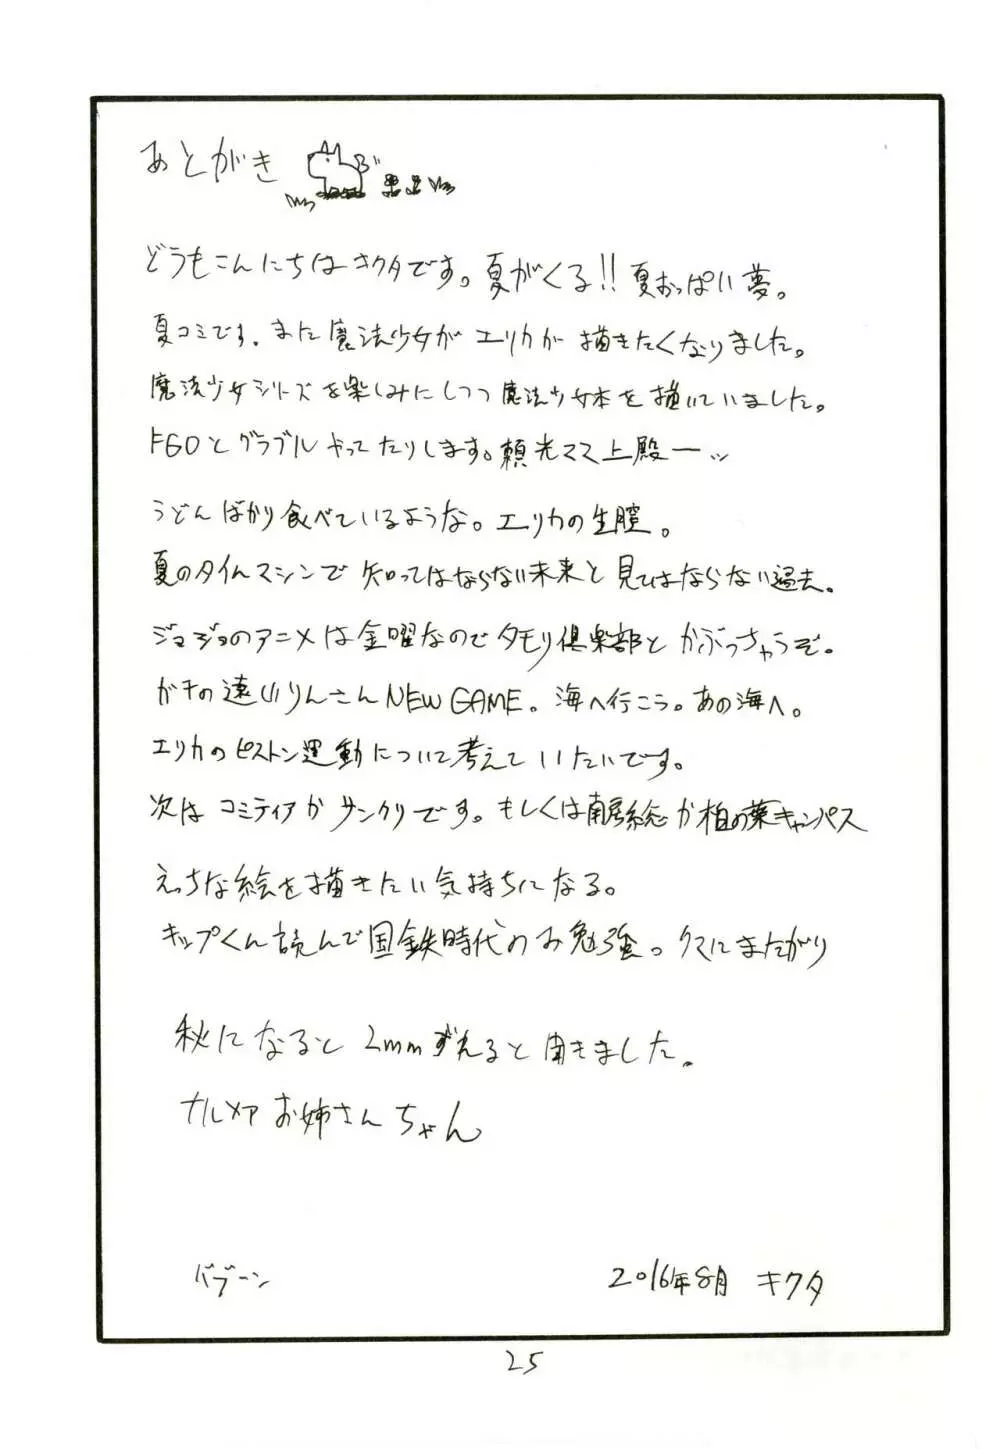 あとがき
どうもこんにちはキクタです。夏がくる!!夏おっぱい夢。
夏コミです。また魔法少女がエリカが描きたくなりました。
魔法少女シリーズを楽しみにしつつ魔法少女本を描いていました。
FGOとグラブルやってたりします。頼光ママ上殿ーッ
うどんばかり食べているような。エリカの生膣。
夏のタイムマシンで知ってはならない未来と見てはならない過去。
ジョジョのアニメは金曜なのでタモリ倶楽部とかぶっちゃうぞ。
ガチの遠山りんさんNEW GAME。海へ行こう。あの海へ。
エリカのピストン運動について考えていたいです。
次はコミティアかサンクリです。もしくは南房総か柏の葉キャンパス
えっちな絵を描きたい気持ちになる。
キップくん読んで国鉄時代のお勉強。クマにまたがり
秋になると2mmずえると聞きました。
ナルメアお姉さんちゃん
バブーン
2016年8月 キクタ
25